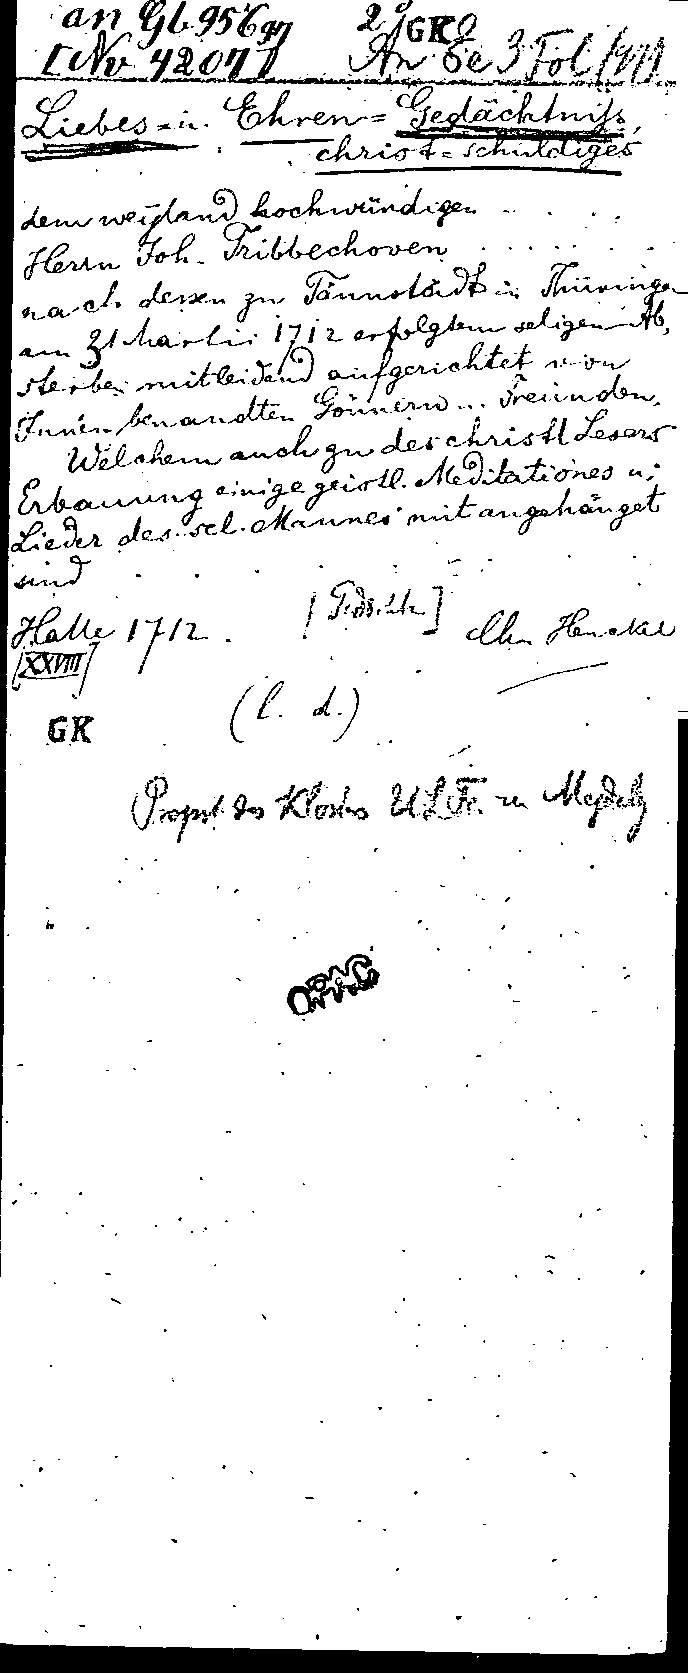 an Gb 956 2° GK
[Nv 4204] An 3 Fol
Liebes= u. Ehren= Gedächtniss,
christ=schuldiges
dem weyland hochwürdigen . . . .
Herrn Joh. Tribbechoven . . . . . .
nach dessen zu Tännstädt in Thüringen
am 31 Martii 1712 erfolgtem seligen Ab,
sterben mitleidend aufgerichtet von
Innen benandten Gönnern u. Freunden.
Welchem auch zu des christl Lesers
Erbauung einige geistl. Meditationes u.
Lieder des sel. Mannes mit angehänget
sind . . . .
Halle 1712. Chr. Henckel
[XXVIII]
GK (l. d.)
Propst des Klosters U L Fr. zu Magdebg